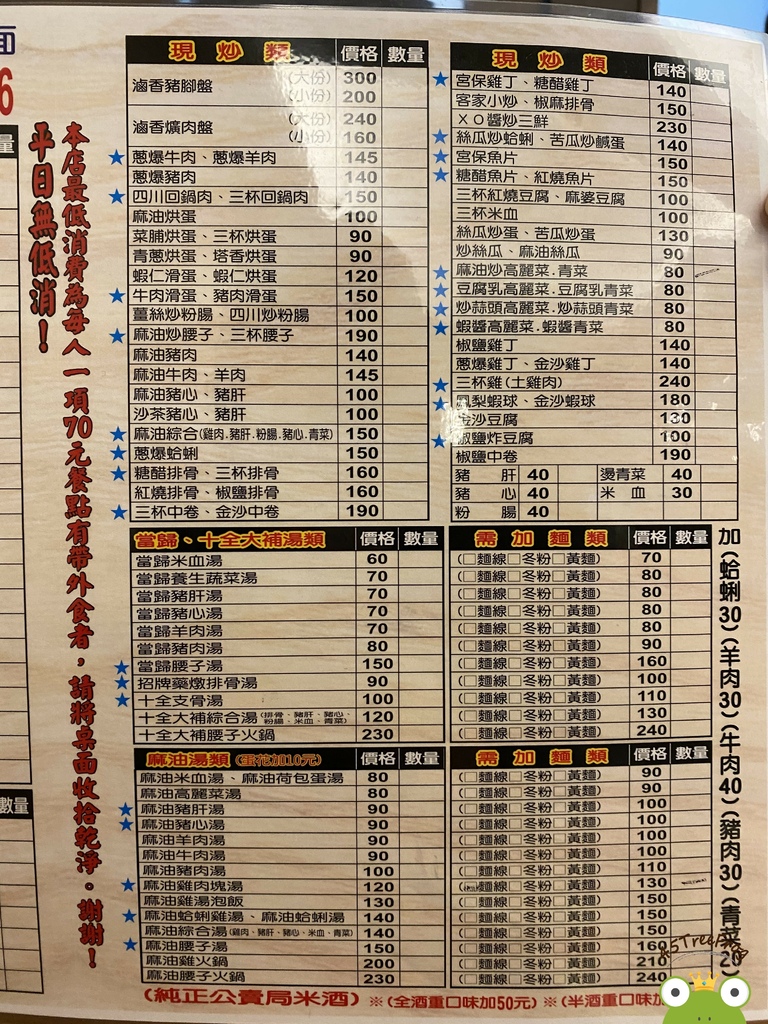 6
量
平日無低消！
本店最低消費為每人一項70元餐點有帶外食者，請將桌面收拾乾淨。謝謝！
數量
現炒類 價格 數量
滷香豬腳盤 (大份) 300
(小份) 200
滷香爌肉盤 (大份) 240
(小份) 160
★ 蔥爆牛肉、蔥爆羊肉 145
蔥爆豬肉 140
★ 四川回鍋肉、三杯回鍋肉 150
麻油烘蛋 100
菜脯烘蛋、三杯烘蛋 90
青蔥烘蛋、塔香烘蛋 90
蝦仁滑蛋、蝦仁烘蛋 120
★ 牛肉滑蛋、豬肉滑蛋 150
薑絲炒粉腸、四川炒粉腸 100
★ 麻油炒腰子、三杯腰子 190
麻油豬肉 140
麻油牛肉、羊肉 145
麻油豬心、豬肝 100
沙茶豬心、豬肝 100
★ 麻油綜合(雞肉.豬肝.粉腸.豬心.青菜) 150
★ 蔥爆蛤蜊 150
★ 糖醋排骨、三杯排骨 160
紅燒排骨、椒鹽排骨 160
★ 三杯中卷、金沙中卷 190
現炒類 價格 數量
★ 宮保雞丁、糖醋雞丁 140
客家小炒、椒麻排骨 150
XO醬炒三鮮 230
★ 絲瓜炒蛤蜊、苦瓜炒鹹蛋 140
★ 宮保魚片 150
★ 糖醋魚片、紅燒魚片 150
三杯紅燒豆腐、麻婆豆腐 100
三杯米血 100
絲瓜炒蛋、苦瓜炒蛋 130
炒絲瓜、麻油絲瓜 90
★ 麻油炒高麗菜.青菜 80
★ 豆腐乳高麗菜.豆腐乳青菜 80
★ 炒蒜頭高麗菜.炒蒜頭青菜 80
★ 蝦醬高麗菜.蝦醬青菜 80
椒鹽雞丁 140
蔥爆雞丁、金沙雞丁 140
★ 三杯雞(土雞肉) 240
★ 鳳梨蝦球、金沙蝦球 180
金沙豆腐 130
★ 椒鹽炸豆腐 100
椒鹽中卷 190
豬肝 40 燙青菜 40
豬心 40 米血 30
粉腸 40
當歸、十全大補湯類 價格 數量
當歸米血湯 60
當歸養生蔬菜湯 70
當歸豬肝湯 70
當歸豬心湯 70
當歸羊肉湯 70
當歸豬肉湯 80
★ 當歸腰子湯 150
★ 招牌藥燉排骨湯 90
★ 十全支骨湯 100
十全大補綜合湯(排骨、豬肝、豬心、粉腸、米血、青菜) 120
十全大補腰子火鍋 230
需加麵類 價格 數量
(□麵線□冬粉□黃麵) 70
(□麵線□冬粉□黃麵) 80
(□麵線□冬粉□黃麵) 80
(□麵線□冬粉□黃麵) 80
(□麵線□冬粉□黃麵) 80
(□麵線□冬粉□黃麵) 90
(□麵線□冬粉□黃麵) 160
(□麵線□冬粉□黃麵) 100
(□麵線□冬粉□黃麵) 110
(□麵線□冬粉□黃麵) 130
(□麵線□冬粉□黃麵) 240
麻油湯類(蛋花加10元) 價格 數量
麻油米血湯、麻油荷包蛋湯 80
麻油高麗菜湯 80
★ 麻油豬肝湯 90
★ 麻油豬心湯 90
麻油羊肉湯 90
麻油牛肉湯 90
麻油豬肉湯 100
★ 麻油雞肉塊湯 120
麻油雞湯泡飯 130
★ 麻油蛤蜊雞湯、麻油蛤蜊湯 140
麻油綜合湯(雞肉、豬肝、豬心、米血、青菜) 140
★ 麻油腰子湯 150
麻油雞火鍋 200
麻油腰子火鍋 230
需加麵類 價格 數量
(□麵線□冬粉□黃麵) 90
(□麵線□冬粉□黃麵) 90
(□麵線□冬粉□黃麵) 100
(□麵線□冬粉□黃麵) 100
(□麵線□冬粉□黃麵) 100
(□麵線□冬粉□黃麵) 100
(□麵線□冬粉□黃麵) 110
(□麵線□冬粉□黃麵) 130
(□麵線□冬粉□黃麵) 150
(□麵線□冬粉□黃麵) 150
(□麵線□冬粉□黃麵) 150
(□麵線□冬粉□黃麵) 160
(□麵線□冬粉□黃麵) 210
(□麵線□冬粉□黃麵) 240
加(蛤蜊30)(羊肉30)(牛肉40)(豬肉30)(青菜20)
(純正公賣局米酒) ※(全酒重口味加50元) ※(半酒重口味加